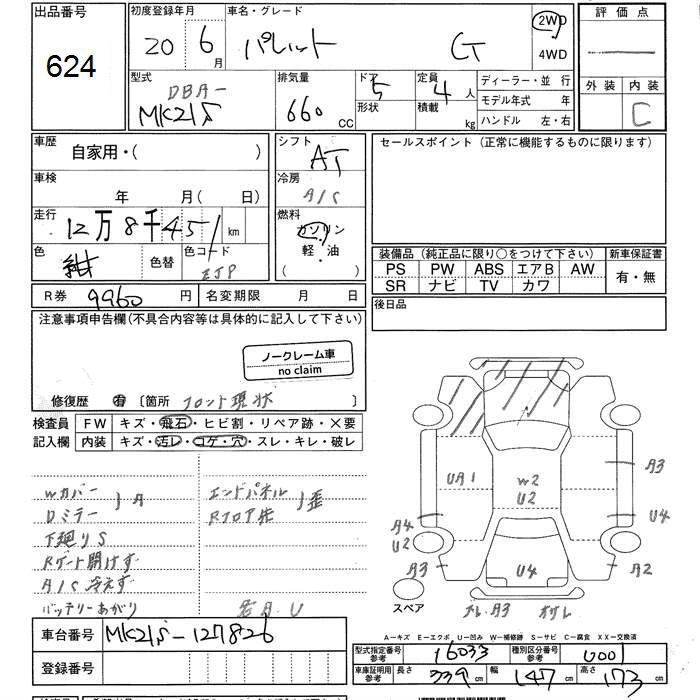 出品番号
624
初度登録年月
20 年 6 月
車名・グレード
パレット G
2WD
4WD
評価点
外装 内装
C
型式
DBA-
MK21S
排気量
660 CC
ドア 5
形状
定員 4 人
積載 kg
ディーラー・並 行
モデル年式 年
ハンドル 左・右
車歴
自家用・( )
シフト
AT
セールスポイント (正常に機能するものに限ります)
車検
年 月( 日)
冷房
A/C
走行
12万8千451 km
燃料
ガソリン
軽・油
( )
色
紺
色替
色コード
ZJP
装備品 (純正品に限り○をつけて下さい)
新車保証書
PS PW ABS エアB AW
SR ナビ TV カワ
有・無
R券 9960 円
名変期限 月 日
後日品
注意事項申告欄(不具合内容等は具体的に記入して下さい)
ノークレーム車
no claim
修復歴 有 〔箇所 フロント現状 〕
検査員
記入欄
FW キズ・飛石・ヒビ割・リペア跡・×要
内装 キズ・汚レ・コゲ・穴・スレ・キレ・破レ
Wカバー
Dミラー
1A
エンドパネル
Rフロア先
1歪
下廻りS
Rゲート開けず
A/C冷えず
バッテリーあがり
若A.U
UA1
W2
U2
A3
U4
A4
U2
A3
U4
A2
スペア
A3
A―キズ E―エクボ U―凹み W―補修跡 S―サビ C―腐食 XX―交換済
車台番号
MK21S-127826
型式指定番号
参考
16033
種別区分番号
参考
0001
登録番号
車庫証明用
参考
長さ 339 cm
幅 147 cm
高さ 173 cm